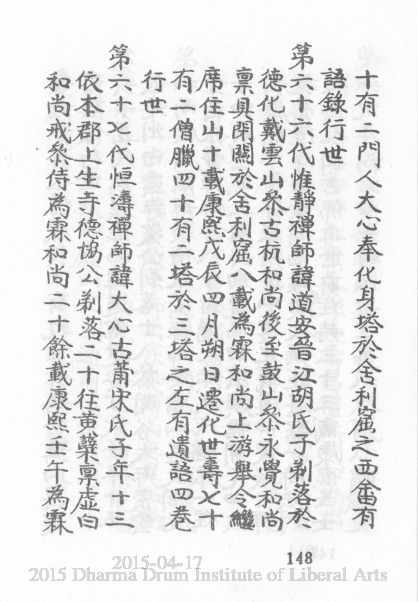 十有二門人大心奉化身塔於舍利窟之西畬有
語錄行世
第六十六代惟靜禪師諱道安晉江胡氏子剃落於
德化戴雲山叅古杭和尚後至鼓山叅永覺和尚
禀具閉關於舍利窟八載為霖和尚上游舉令繼
席住山十載康熙戊辰四月朔日遷化世壽七十
有二僧臘四十有二塔於三塔之左有遺語四卷
行世
第六十七代恒濤禪師諱大心古莆宋氏子年十三
依本郡上生寺德協公剃落二十往黄蘗禀虛白
和尚戒叅侍為霖和尚二十餘載康熙壬午為霖
148
2015-04-17
2015 Dharma Drum Institute of Liberal Arts